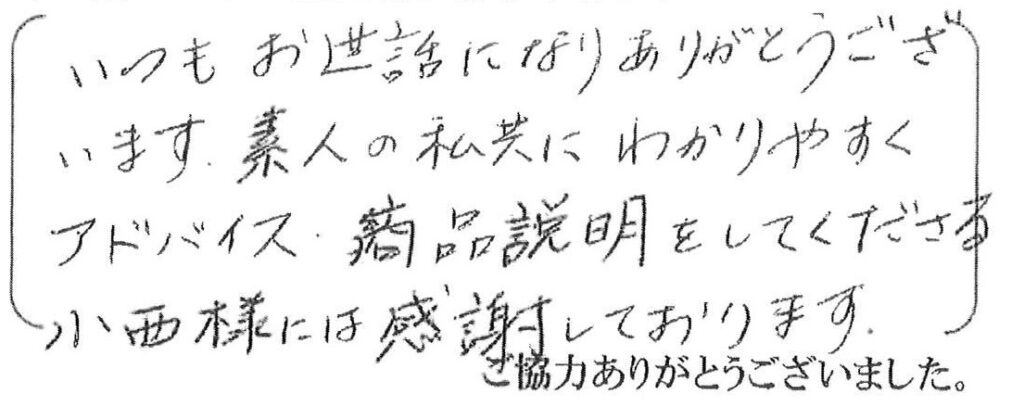 いつもお世話になりありがとうござ
います。素人の私共にわかりやすく
アドバイス・商品説明をしてくださる
小西様には感謝しております。
ご協力ありがとうございました。